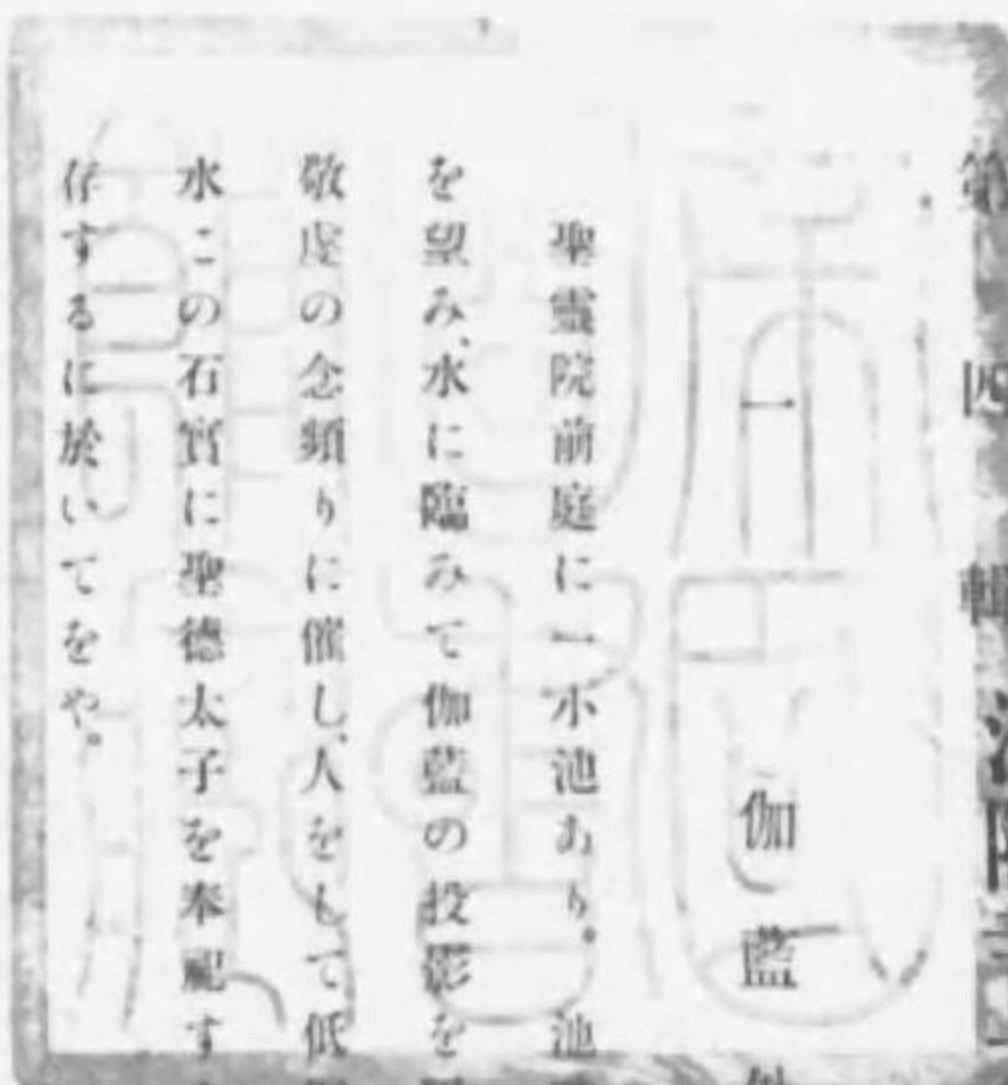 第四輯
一
伽藍
聖靈院前庭に一小池あり。池
を望み、水に臨みて伽藍の投影を
敬虔の念頻りに催し、人をして低
水この石實に聖德太子を奉祀す
するに於いてをや。